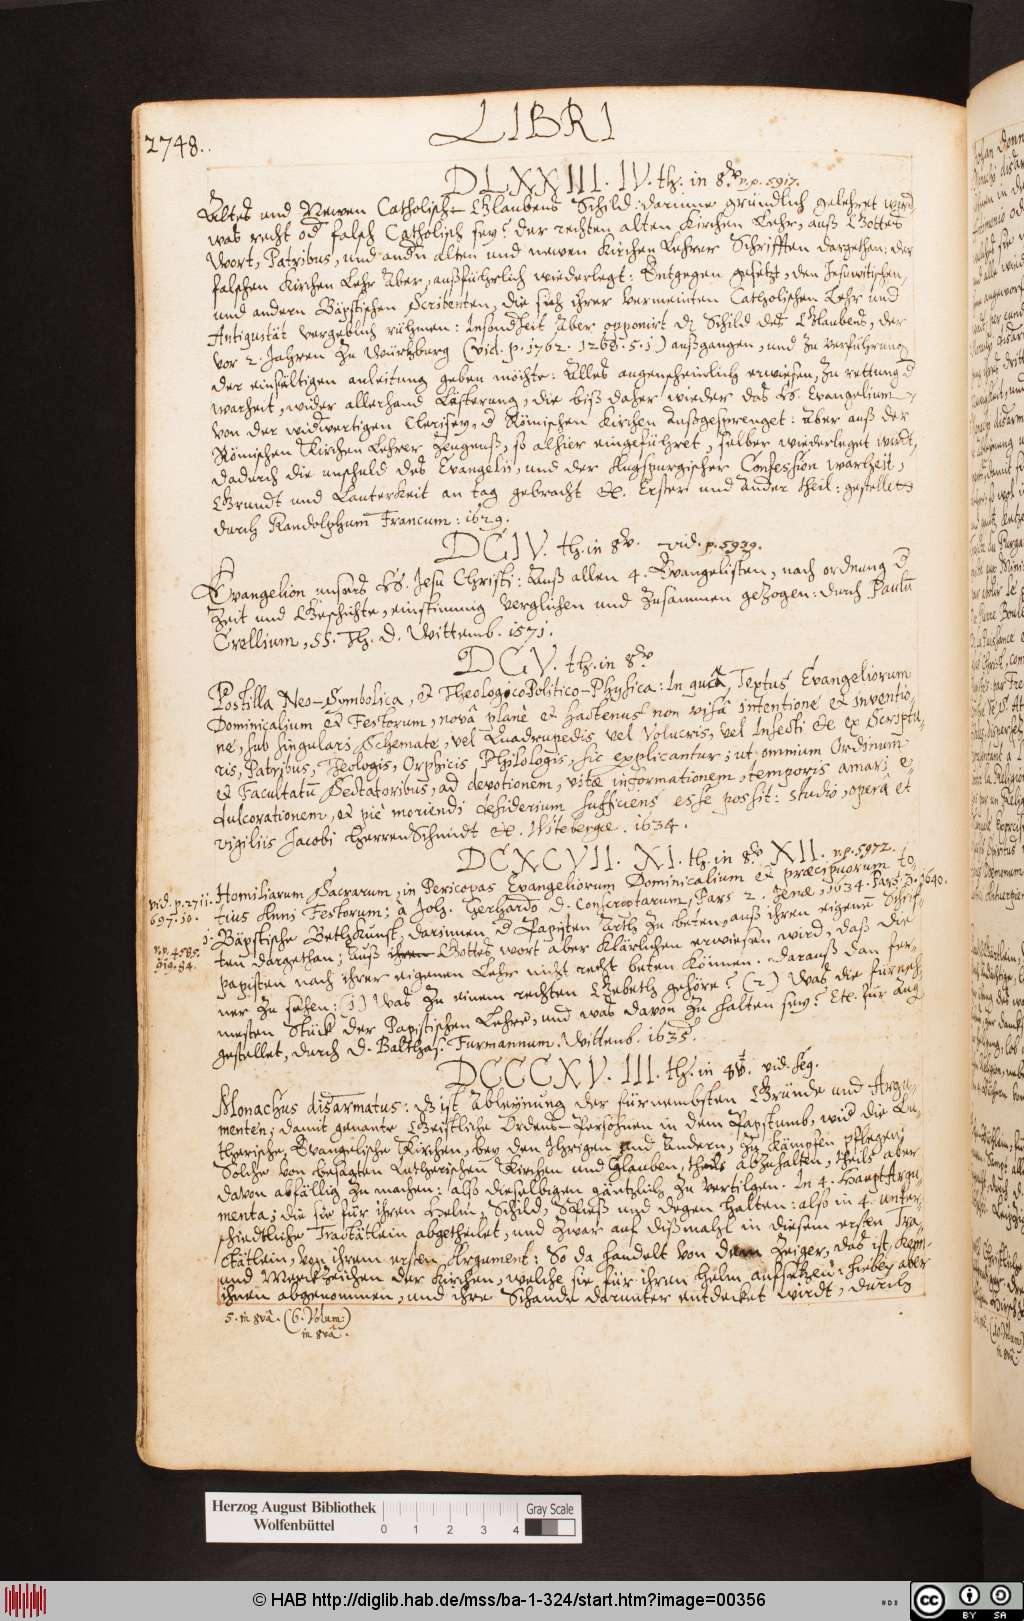 2748.
LIBRI
DLXXIII. IV. th. in 8vo v. p. 5917.
Altes und Newen Catholisch- Glaubens Schild: darinne gründlich gelehret wird,
was recht od falsch Catholisch sey? der rechten alten Kirchen Lehr, auß Gottes
Wort, Patribus, und andn alten und newen Kirchen Lehrer Schrifften dargethan: der
falschen Kirchen Lehr Aber, außführlich wiederlegt: Entgegen gesetzt, den Jesuwitischen,
und andern Bäpstischen Scribenten, die sich ihrer vermeinten Catholischen Lehr und
Antiquität vergeblich rühmen: Insondheit Aber opponirt dz Schild des Glaubens, der
vor 2. Jahren zu Würtzburg (vid. p. 1762. 1268. 5. 1) außgangen, und zu verführung
der einfältigen anleitung geben möchte: Alles augenscheinlich erwiesen, zu rettung d
warheit, wider allerhand Lästerung, die biß daher wieder das H. Evangelium,
von der widwertigen Clerisey, d Römischen Kirchen Außgesprenget: Aber auß der
Römischen Kirchen Lehrer Zeugnuß, so alhier eingeführet, selber wiederleget wirdt,
dadurch die unschuld des Evangelij, und der Augspurgischer Confession warheit,
Grundt und Lauterkeit an tag gebracht &c. Erster und Ander theil: gestellet
durch Randolphum Francum: 1629.
DCIV. th. in 8v. vid. p. 5939.
Evangelion unsers H. Jesu Christi: Auß allen 4. Evangelisten, nach ordnung d
Zeit und Geschichte, einstimmig Verglichen und zusammen gezogen: durch Paulū
Crellium, SS. Th. D. Wittemb. 1571.
DCV. th. in 8vo
Postilla Neo-Symbolica, et TheologocoPolitico-Physica: In quâ, Textus Evangeliorum
Dominicalium et Festorum, novâ planè et hactenus non visâ intentione et inventio-
ne, sub singulari Schemate, vel Quadrupedis vel Volucris, vel Insecti &c ex Scriptu-
ris, Patribus, Theologis, Orphicis Philologis, sic explicantur; ut omnium Ordinum
et Facultatū Sectatoribus, ad devotionem, vitæ informationem, temporis amari e-
dulcorationem, et piè moriendi desiderium sufficiens esse possit: studio, operâ et
vigiliis Jacobi HerrenSchmidt &c. Witebergæ. 1634.
DCXCVII. XI. th. in 8vo XII. v. p. 5972.
vid. p. 2711.
697. 10.
Homiliarum Sacrarum, in Pericopas Evangeliorum Dominicalium et præcipuorum to-
tius Anni Festorum; à Joh. Gerhardo D. conscriptarum, Pars 2. Jenæ, 1634. Pars 3. 1640.
v. p. 4585.
919. 84.
1. Bäpstische Bethkunst, darinnen d Papisten Arth zu beten, auß ihren eigenē Schrif-
ten dargethan; Auß ihren Gottes wort aber klärlichen erwiesen wird, daß die
papisten nach ihrer eigenen Lehr nicht recht beten können. Darauß dan fer-
ner zu sehen: (1) Was zu einem rechten Gebeth gehöre? (2) Was die fürneh-
mesten Stück der Papistischen Lehre, und was davon zu halten sey? Etc. für Aug
gestellet, durch D. Balthas. Furmannum. Wittenb. 1635.
DCCCXV. III. th. in 8v. vid. seq.
Monachus disarmatus: Dz ist Ableynung der fürnembsten Gründe und Argu-
menten; damit genante Geistliche Ordens-Persohnen in dem Papstumb, wid die Lu-
therische Evangelische Kirchen, bey den Ihrigen und Andern, zu Kämpfen pflegen;
Solche von besagten Lutherischen Kirchen und Glauben, theils abzuhalten, theils aber
davon abfällig zu machen; Also dieselbigen gäntzlich zu vertilgen. In 4. Haupt Argu-
menta; die sie für ihren Helm, Schild, Spieß und Degen halten: also in 4. unter-
schiedtliche Tractätlein abgetheilet, und zwar auf dißmahl in diesem ersten Tra-
ctätlein, von ihrem ersten Argument: So da handelt von dem Zeiger, das ist, Kenn-
und Merckzeichen der Kirchen, welche sie für ihren Helm aufsetzen: hiebey aber
ihnen abgenommen, und ihre Schande darunter entdecket wirdt, durch
5. in 8vâ. (6. Volum:)
in 8vâ.
Herzog August Bibliothek
Wolfenbüttel
0 1 2 3 4
Gray Scale
© HAB http://diglib.hab.de/mss/ba-1-324/start.htm?image=00356
cc BY SA